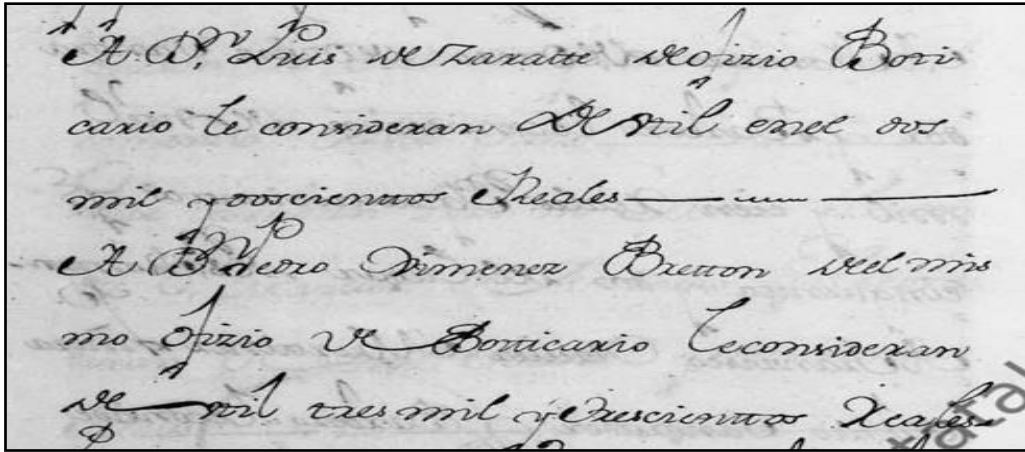 A D.n Luis de Zaratte de ofizio Boti
cario le consideran de Util en el dos
mil y doscienttos Reales
A D.n Pedro Ximenez Bretton del mis
mo ofizio de Botticario le consideran
de Util tres mil y trescienttos Reales